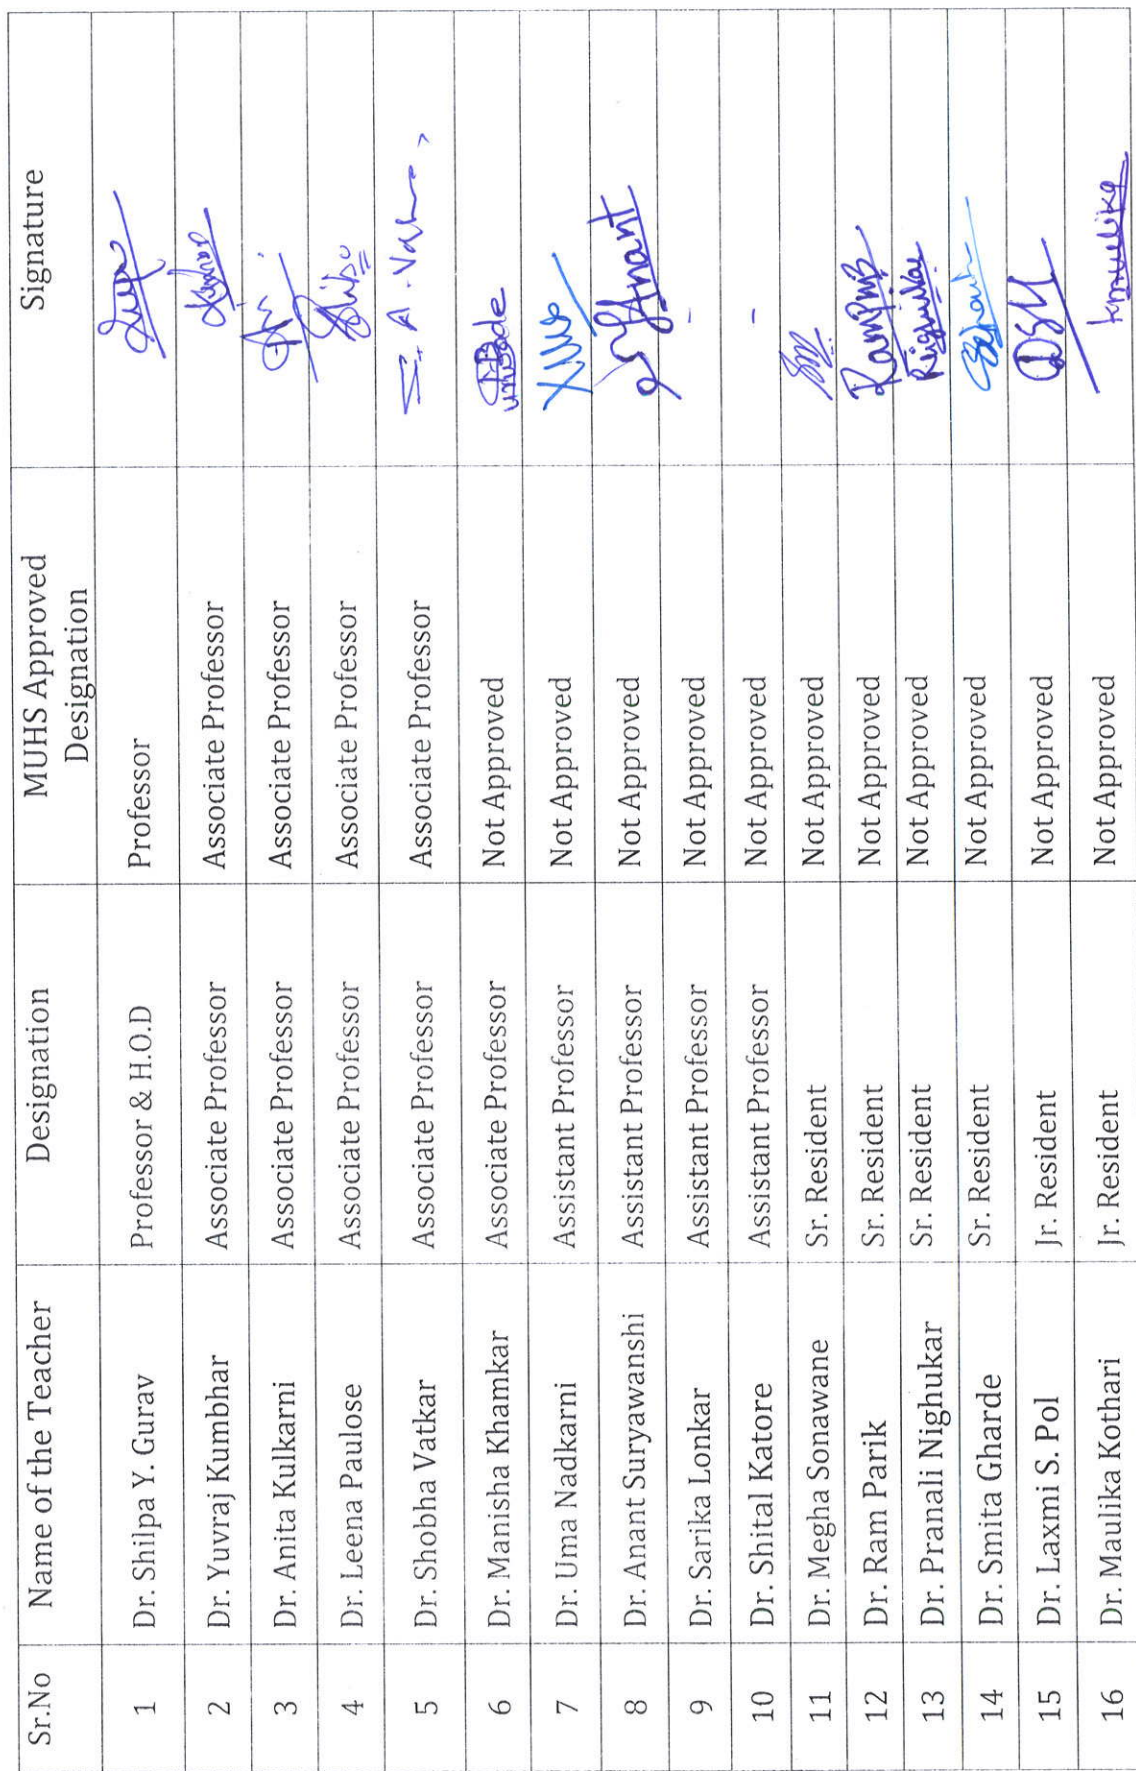 Sr.No Name of the Teacher Designation MUHS Approved Designation Signature
1 Dr. Shilpa Y. Gurav Professor & H.O.D Professor
2 Dr. Yuvraj Kumbhar Associate Professor Associate Professor
3 Dr. Anita Kulkarni Associate Professor Associate Professor
4 Dr. Leena Paulose Associate Professor Associate Professor
5 Dr. Shobha Vatkar Associate Professor Associate Professor
6 Dr. Manisha Khamkar Associate Professor Not Approved
7 Dr. Uma Nadkarni Assistant Professor Not Approved
8 Dr. Anant Suryawanshi Assistant Professor Not Approved Anant
9 Dr. Sarika Lonkar Assistant Professor Not Approved -
10 Dr. Shital Katore Assistant Professor Not Approved -
11 Dr. Megha Sonawane Sr. Resident Not Approved
12 Dr. Ram Parik Sr. Resident Not Approved
13 Dr. Pranali Nighukar Sr. Resident Not Approved
14 Dr. Smita Gharde Sr. Resident Not Approved
15 Dr. Laxmi S. Pol Jr. Resident Not Approved
16 Dr. Maulika Kothari Jr. Resident Not Approved